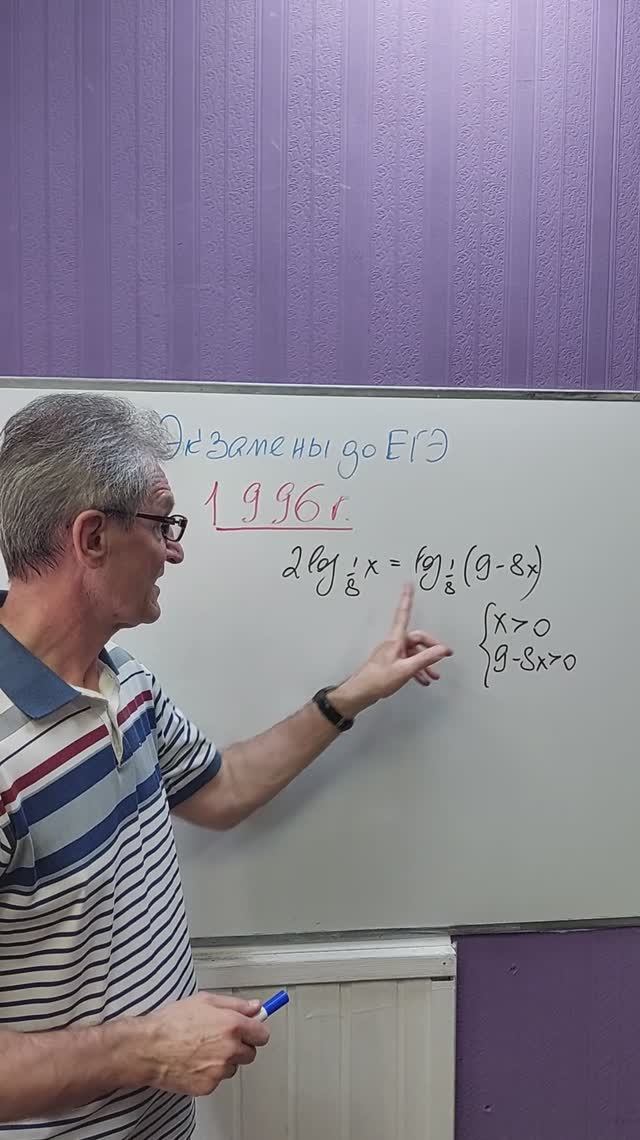 Экзамены до ЕГЭ
1996 г.
2 log 1/8 x = log 1/8 (9 - 8x)
{ x > 0
9 - 8x > 0